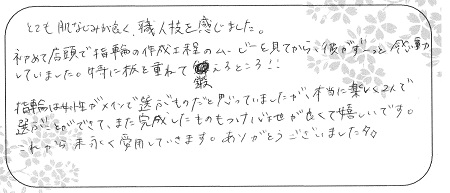 とても肌なじみが良く、職人技を感じました。
初めて店頭で指輪の作成工程のムービーを見てから、彼がずーっと感動
していました。特に板を重ねて鍛えるところ!!
指輪は女性がメインで選ぶものだと思っていましたが、本当に楽しく2人で
選ぶことができて、また完成したものもつけ心地が良くて嬉しいです。
これから末永く愛用していきます。ありがとうございました